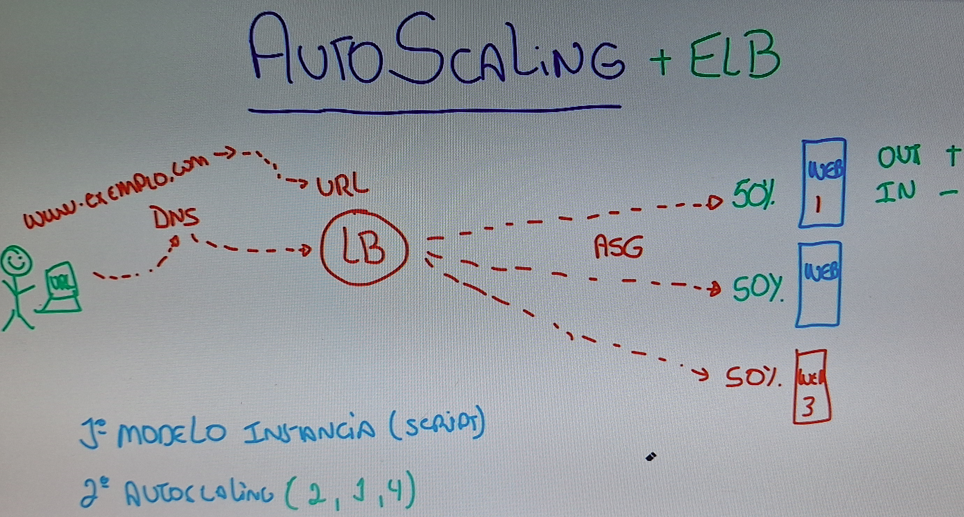 AUTOSCALING + ELB
www.exemplo.com
URL
DNS
URL
LB
ASG
50%
WEB
1
OUT +
IN -
50%
WEB
50%
WEB
3
1º MODELO INSTANCIA (SCRIPT)
2º AUTOSCALING (2, 1, 4)